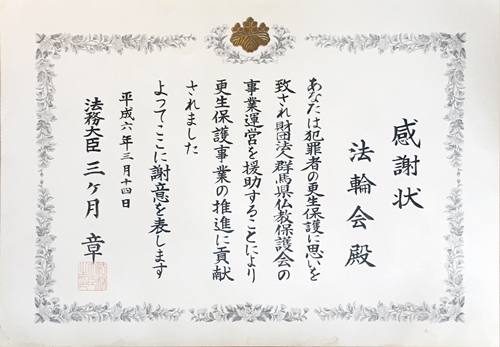 感謝状
法輪会殿
あなたは犯罪者の更生保護に思いを
致され財団法人群馬県仏教保護会の
事業運営を援助することにより
更生保護事業の推進に貢献
されました
よってここに謝意を表します
平成六年三月十四日
法務大臣 三ヶ月章